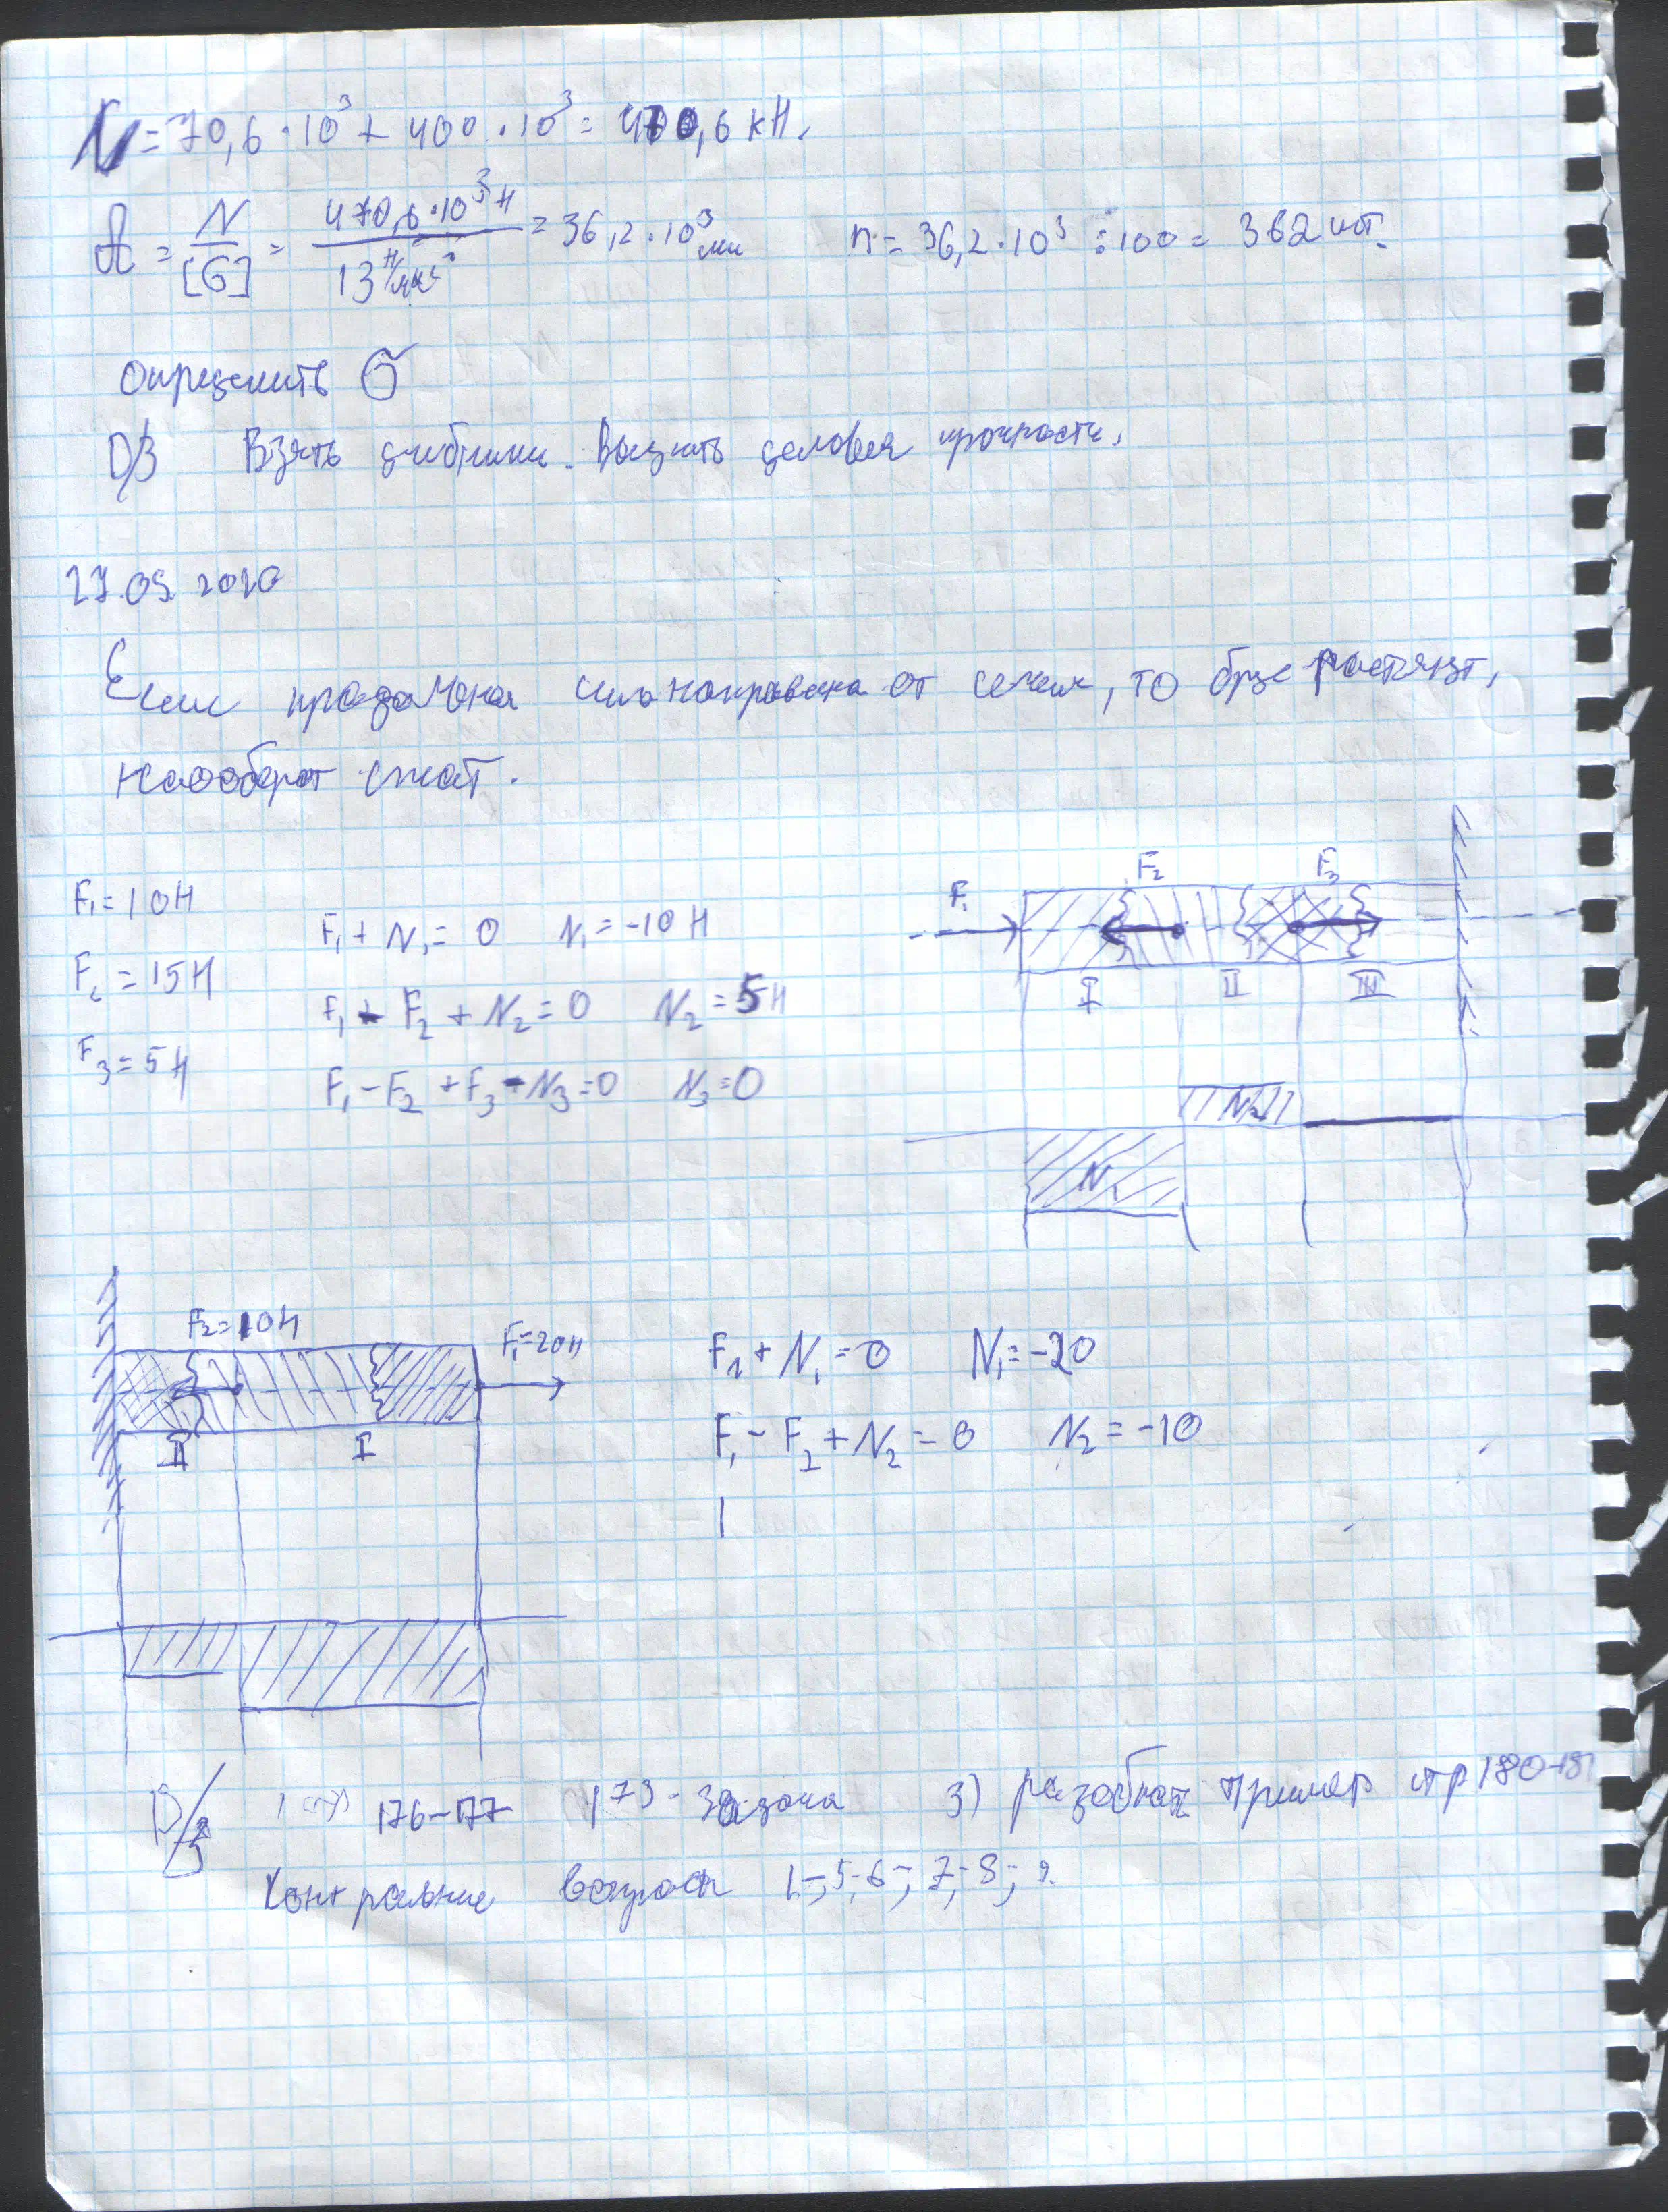 N = 70,6·10³ + 400·10³ = 470,6 кН.
A = N/[б] = 470,6·10³ Н / 13 Н/мм² = 36,2·10³ мм n = 36,2·10³ ÷ 100 = 362 шт.
Определить б
D/З Взять учебники. Выучить условия прочности.
27.09.2010
Если продольная сила направлена от сечения, то брус растянут,
наоборот сжат.
F₁ F₂ F₃
F₁ = 10Н
F₁ + N₁ = 0 N₁ = -10 Н
F₂ = 15Н
F₁ - F₂ + N₂ = 0 N₂ = 5 Н
I II III
F₃ = 5Н
F₁ - F₂ + F₃ - N₃ = 0 N₃ = 0
N₂
N₁
F₂ = 10Н F₁ = 20Н
F₁ + N₁ = 0 N₁ = -20
F₁ - F₂ + N₂ = 0 N₂ = -10
II I
D/з 1 стр 176-177 173 - 3 3) разобрать пример стр 180-181
Контрольные вопросы 1-; 5-6-; 7-8-; 9.